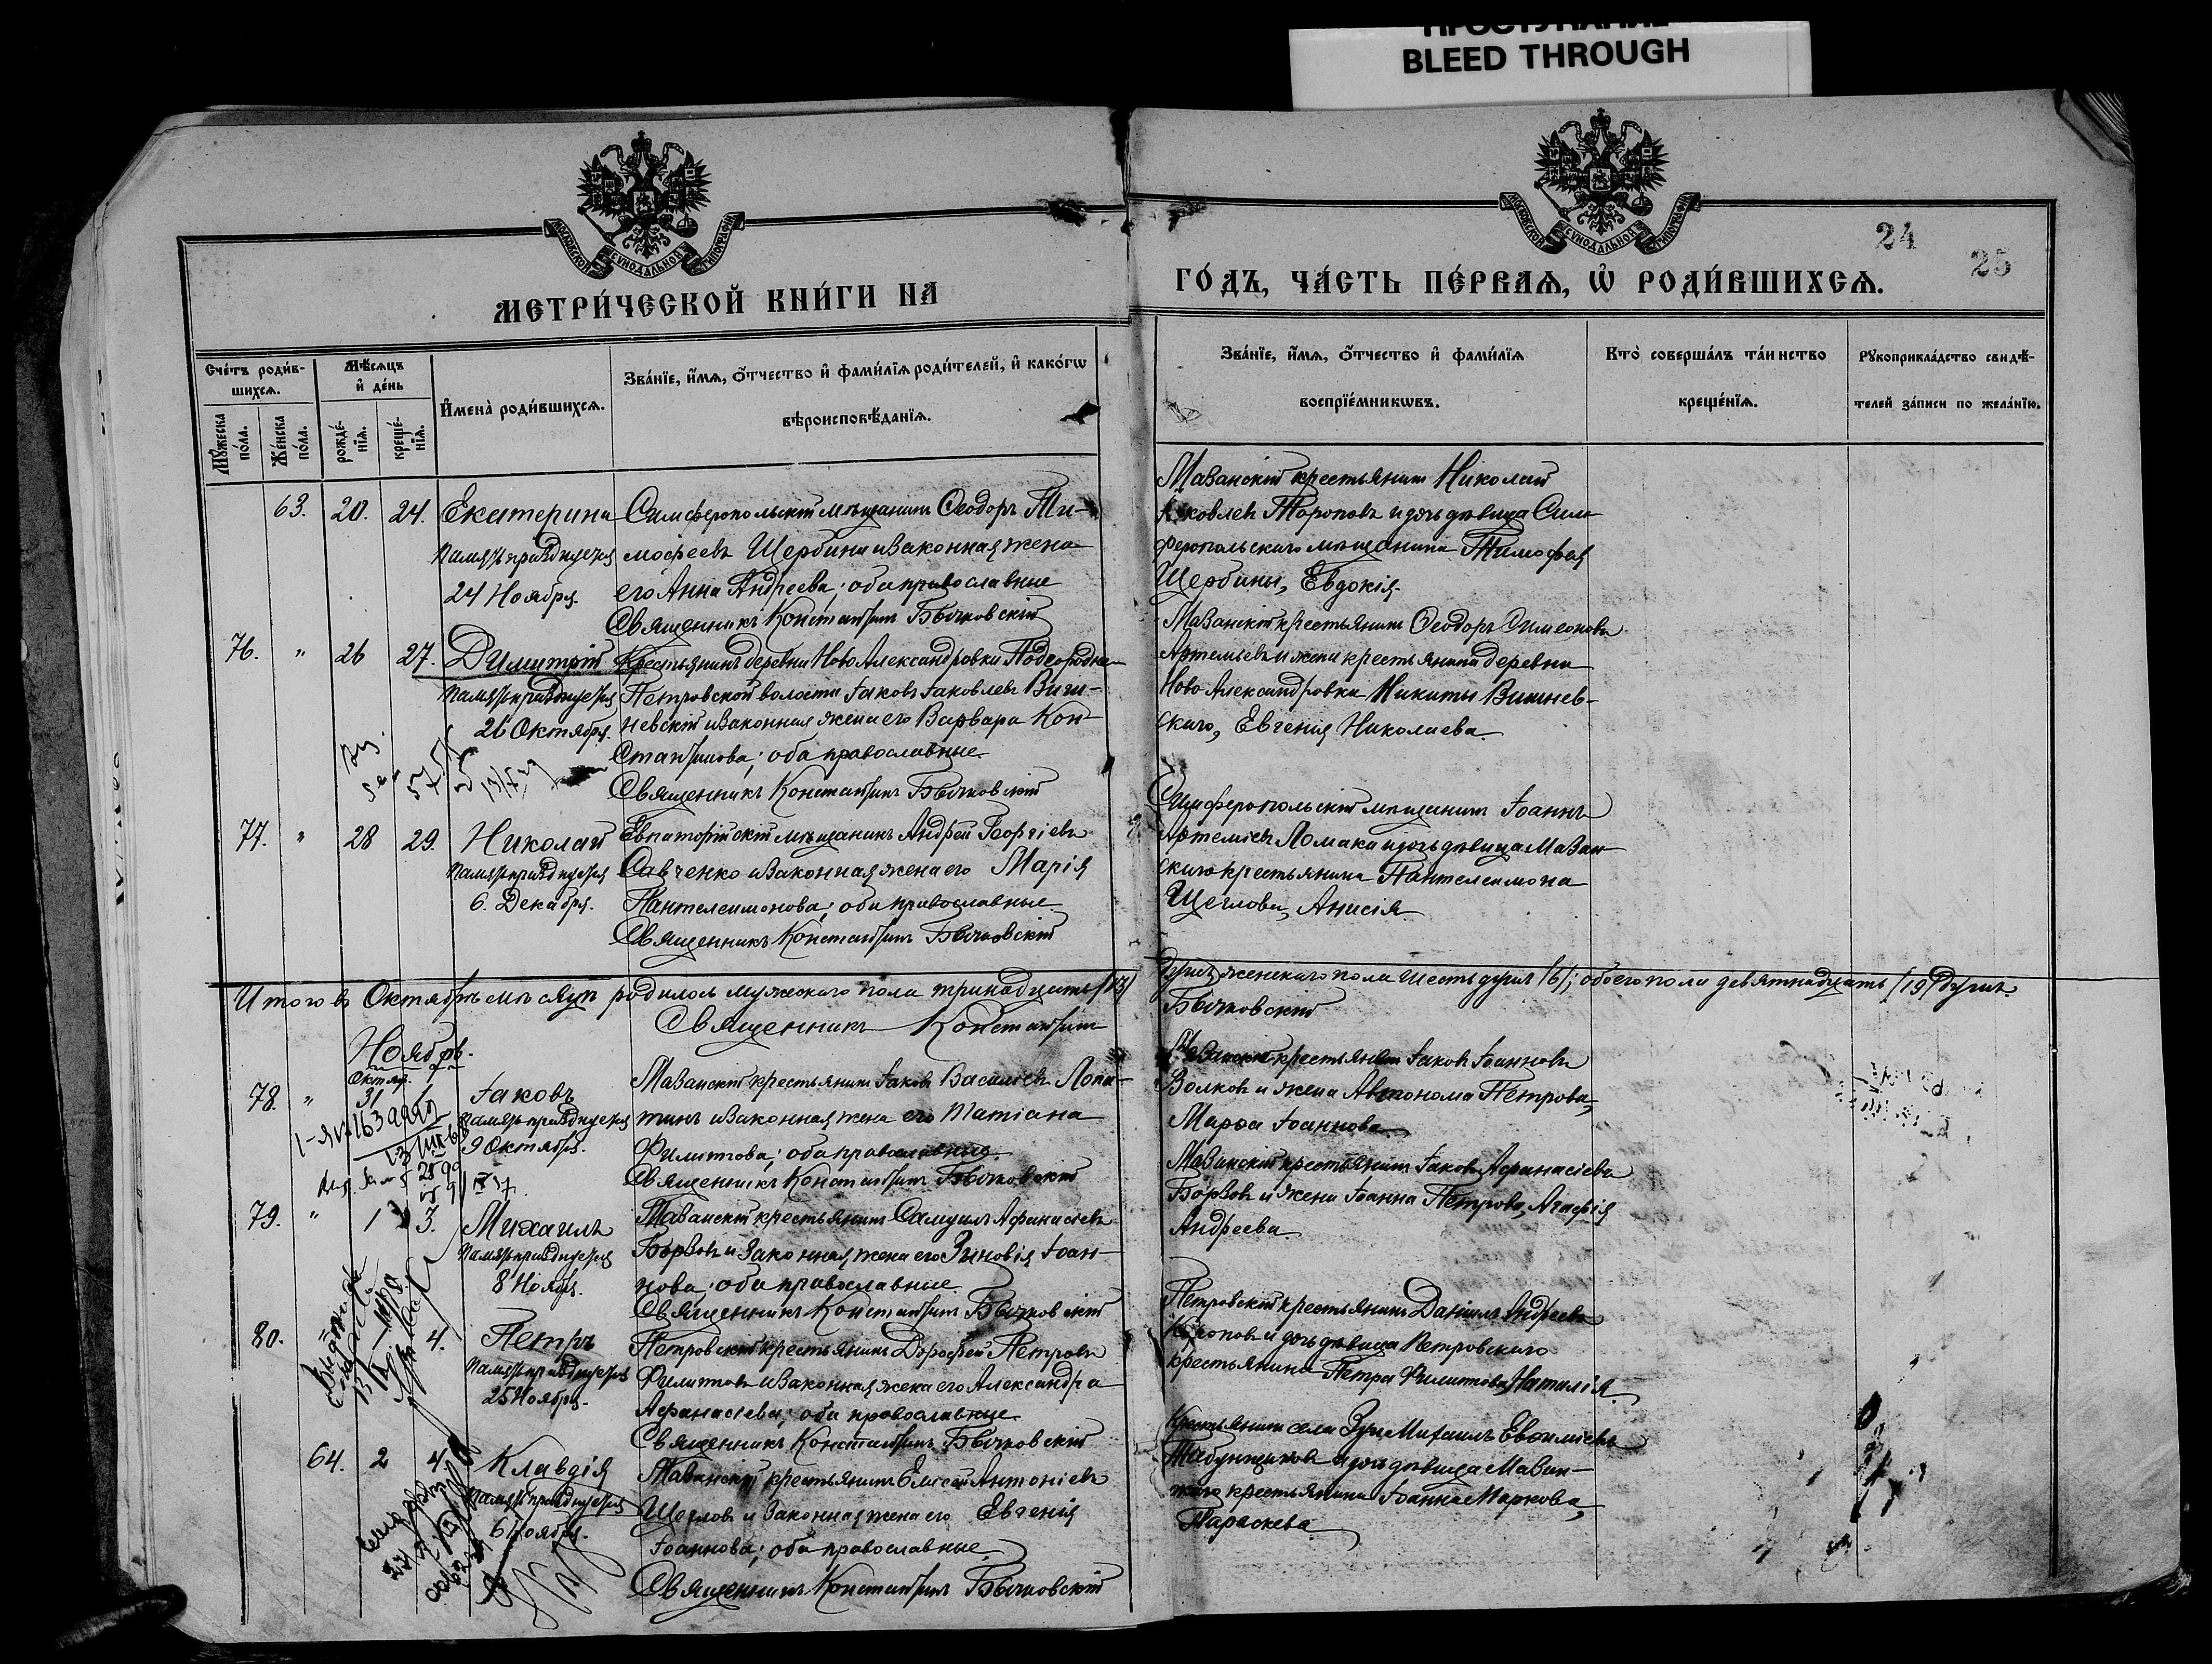 ПРОСТУПАНИЕ
BLEED THROUGH
МОСКОВСКОЙ СѴНОДАЛЬНОЙ ТИПОГРАФІИ
МОСКОВСКОЙ СѴНОДАЛЬНОЙ ТИПОГРАФІИ
24
25
МЕТРИ́ЧЕСКОЙ КНИ́ГИ НА
ГО́ДЪ, ЧА́СТЬ ПЕ́РВАѦ, Ѡ҆ РОДИ́ВШИХСѦ.
Сче́тъ роди́в-
шихсѧ.
Мꙋ́жеска по́ла.
Же́нска по́ла.
Мѣ́сѧцъ
и҆ де́нь
рожде́-
нїѧ.
креще́-
нїѧ.
И҆мена̀ роди́вшихсѧ.
Зва́нїе, и҆́мѧ, ѻ҆́тчество и҆ фами́лїѧ роди́телей, и҆ како́гѡ
вѣроисповѣ́данїѧ.
Зва́нїе, и҆́мѧ, ѻ҆́тчество и҆ фами́лїѧ
воспрїе́мникѡвъ.
Кто̀ соверша́лъ та́инство
креще́нїѧ.
Рꙋкоприкла́дство свидѣ́-
телей за́писи по жела́нїю.
63. 20. 24. Екатерина
память празднуется
24 Ноября.
Симферопольскій мѣщанинъ Ѳеодоръ Ти-
мофеевъ Щербина и законная жена
его Анна Андреева; оба православные
Священникъ Константинъ Бычковскій
Мазанскій крестьянинъ Николай
Яковлевъ Тороповъ и дочь дѣвица Сим-
феропольскаго мѣщанина Тимофея
Щербины, Евдокія.
76. " 26 27. Димитрій
память празднуется
26 Октября.
Крестьянинъ деревни Ново Александровки Подгородне-
Петровской волости Іаковъ Іаковлевъ Виш-
невскій и законная жена его Варвара Кон-
стантинова; оба православные.
Священникъ Константинъ Бычковскій
Мазанскій крестьянинъ Ѳеодоръ Симеоновъ
Артемьевъ и жена крестьянина деревни
Ново Александровки Никиты Вишнев-
скаго, Евгенія Николаева.
77. " 28 29. Николай
память празднуется
6. Декабря.
Евпаторійскій мѣщанинъ Андрей Георгіевъ
Савченко и законная жена его Марія
Пантелеимонова; оба православные.
Священникъ Константинъ Бычковскій
Симферопольскій мѣщанинъ Іоаннъ
Артеміевъ Ломака и дочь дѣвица Мазан-
скаго крестьянина Пантелеимона
Щеглова, Анисія.
Итого въ Октябрѣ мѣсяцѣ родилось мужескаго пола тринадцать /13/
душъ, женскаго пола шесть душъ /6/; обоего пола девятнадцать /19/ душъ.
Священникъ Константинъ
Бычковскій
Ноябрь.
Октяб.
78. " 31 1 Іаковъ
память празднуется
9 Октября.
Мазанскій крестьянинъ Іаковъ Василіевъ Лопа-
тинъ и законная жена его Татіана
Филиппова; оба православные.
Священникъ Константинъ Бычковскій
Мазанскій крестьянинъ Іаковъ Іоанновъ
Волковъ и жена Автонома Петрова,
Марѳа Іоаннова
79. " 1 3. Михаилъ
память празднуется
8 Ноября.
Мазанскій крестьянинъ Самуилъ Афанасіевъ
Борзовъ и законная жена его Зиновія Іоан-
нова; оба православные.
Священникъ Константинъ Бычковскій
Мазанскій крестьянинъ Іаковъ Афанасіевъ
Борзовъ и жена Іоанна Петрова, Агафія
Андреева.
80. 4. Петръ
память празднуется
25 Ноября.
Петровскій крестьянинъ Дорофей Петровъ
Филиповъ и законная жена его Александра
Афанасіева; оба православные.
Священникъ Константинъ Бычковскій
Петровскій крестьянинъ Даніилъ Андреевъ
и дочь дѣвица Петровскаго
крестьянина Петра Филипова, Наталія
64. 2 4. Клавдія
память празднуется
6 Ноября.
Мазанскій крестьянинъ Елисей Антоніевъ
Щегловъ и законная жена его Евгенія
Іоаннова; оба православные.
Священникъ Константинъ Бычковскій
Крестьянинъ села Зуи Михаилъ Евѳиміевъ
Табунщиковъ и дочь дѣвица Мазан-
скаго крестьянина Іоанна Маркова,
Параскева